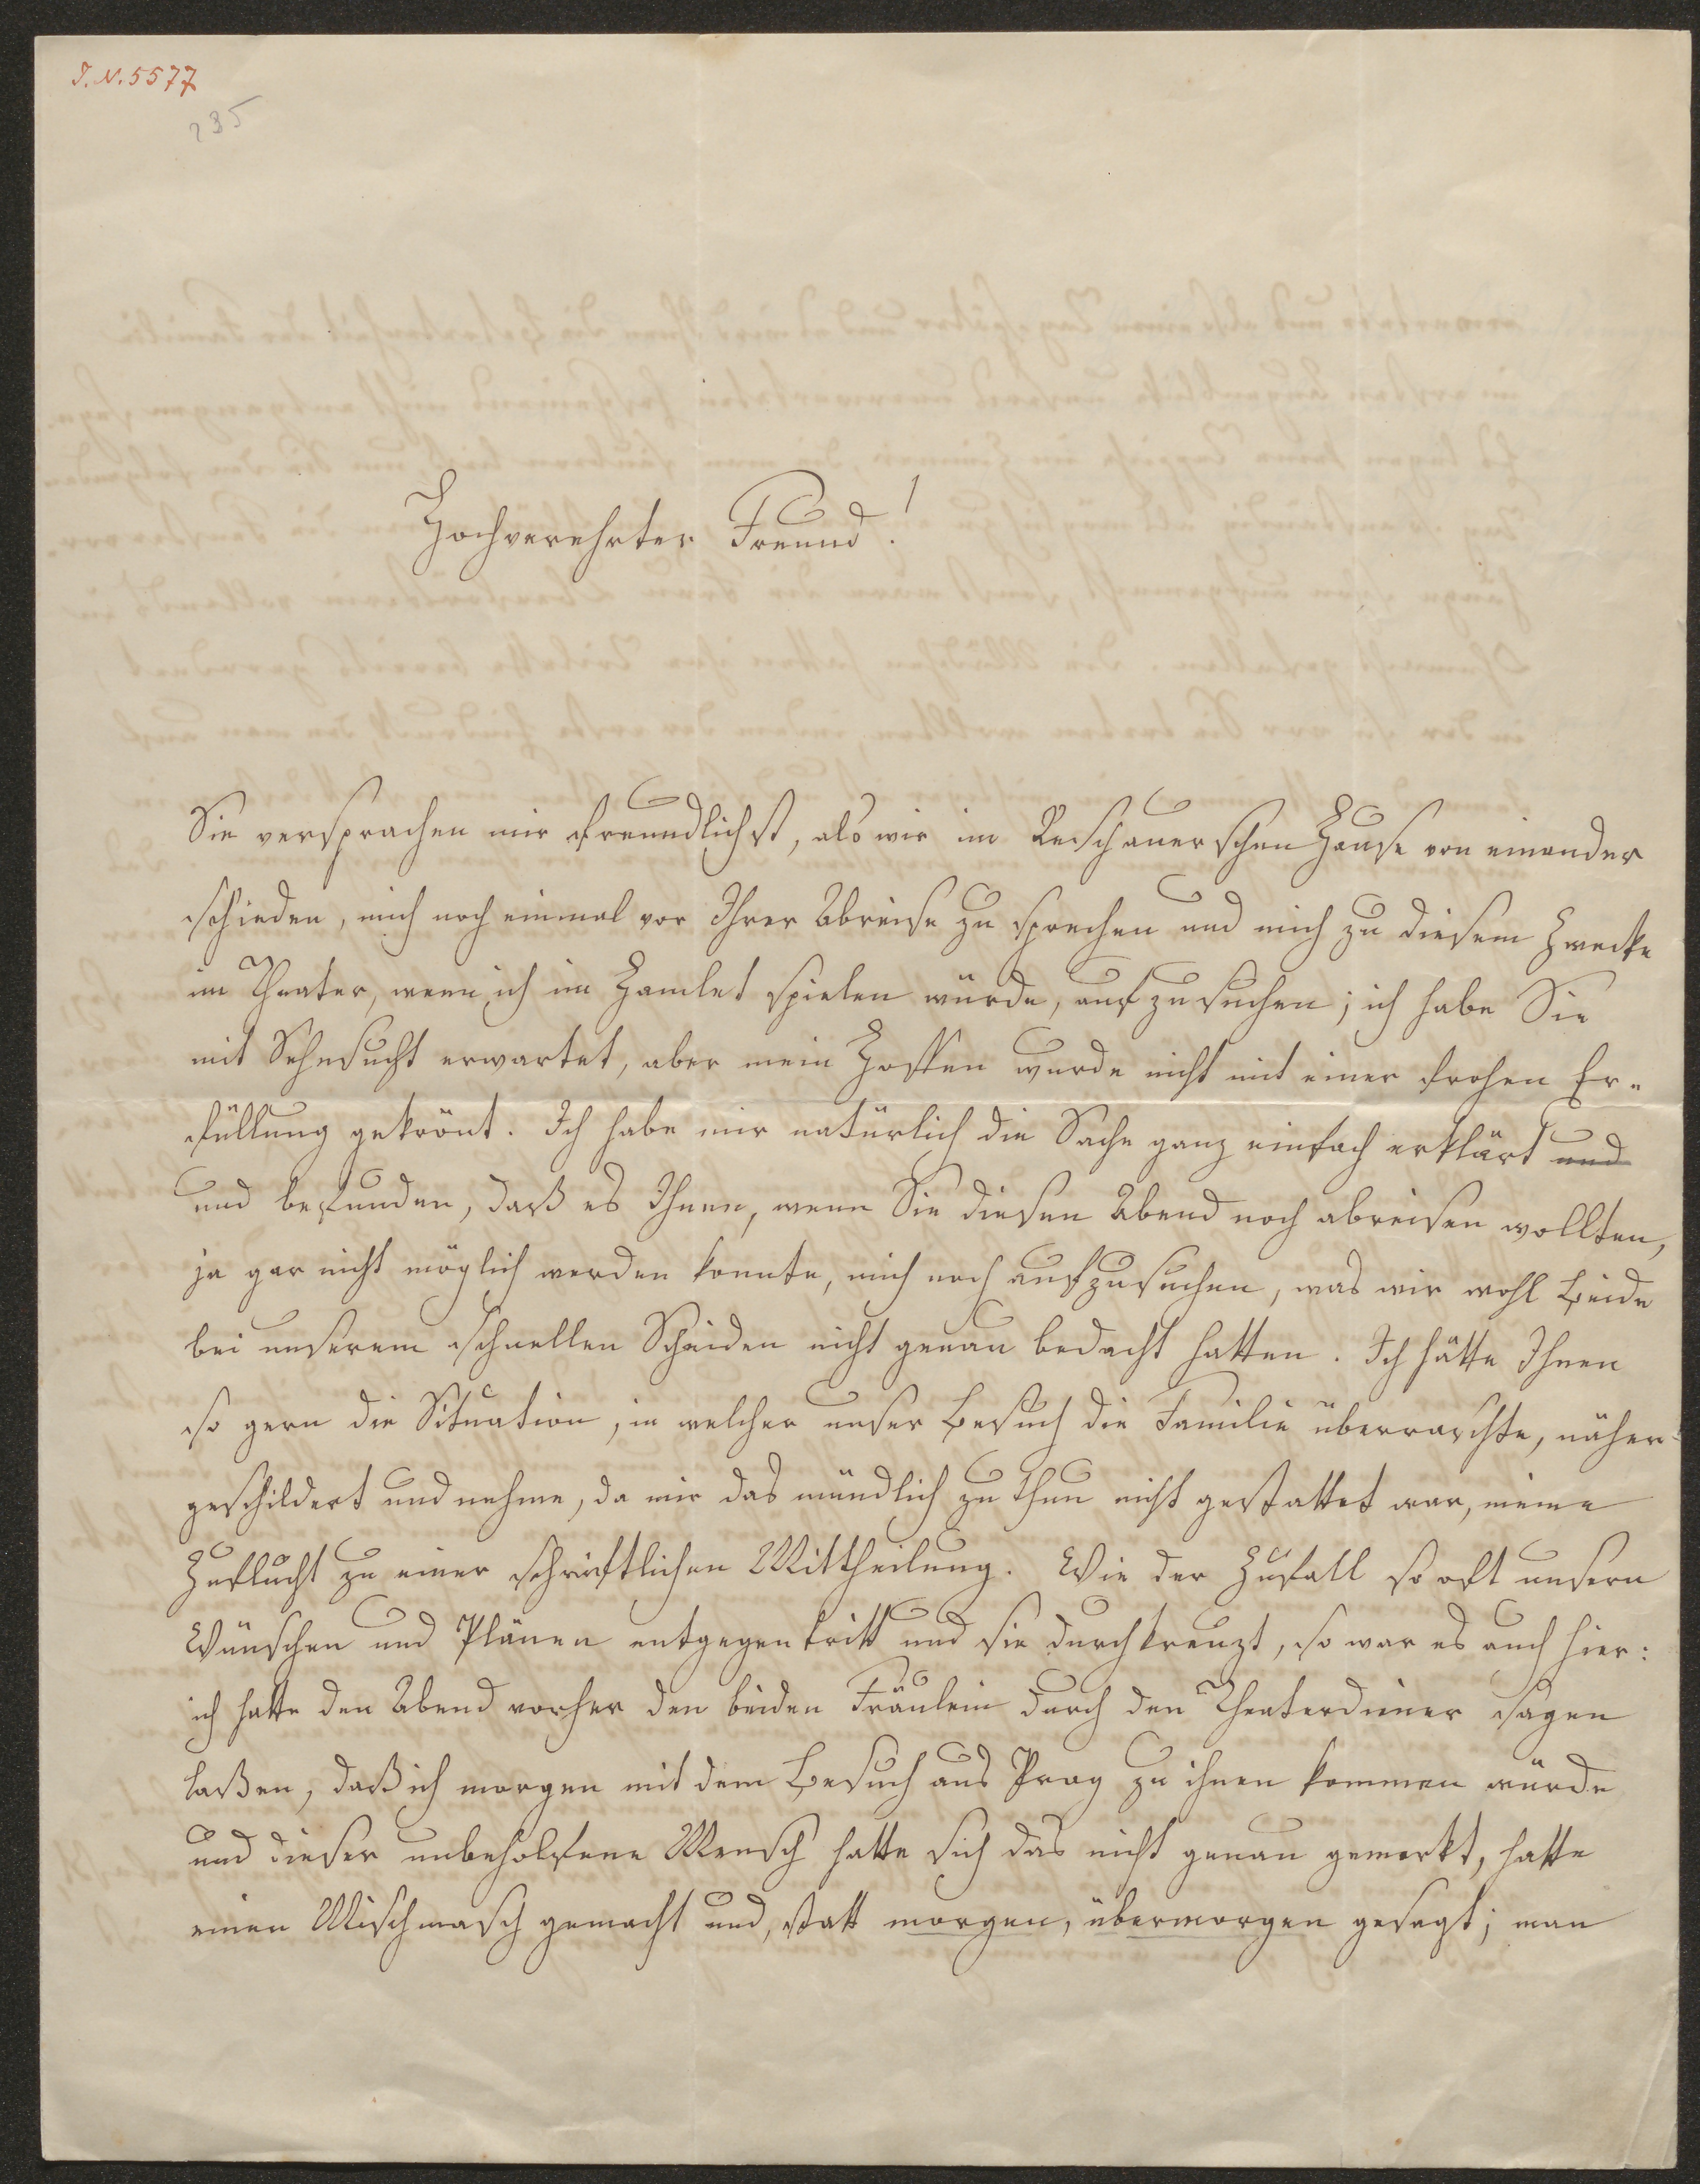 I. N. 5577
235
Hochverehrter Freund!
Sie versprachen mir freundlichst, als wir im Reschauerschen Hause von einander
schieden, mich noch einmal vor Ihrer Abreise zu sprechen und mich zu diesem Zwecke
im Theater, wenn ich im Hamlet spielen würde, aufzusuchen; ich habe Sie
mit Sehnsucht erwartet, aber mein Hoffen wurde nicht mit einer frohen Er-
füllung gekrönt. Ich habe mir natürlich die Sache ganz einfach erklärt und
und befunden, daß es Ihnen, wenn Sie diesen Abend noch abreisen wollten,
ja gar nicht möglich werden konnte, mich noch aufzusuchen, was wir wohl Beide
bei unserem schnellen Scheiden nicht genau bedacht hatten. Ich hätte Ihnen
so gern die Situation, in welcher unser Besuch die Familie überraschte, näher
geschildert und nehme, da mir das mündlich zu thun nicht gestattet war, meine
Zuflucht zu einer schriftlichen Mittheilung. Wie der Zufall so oft unsern
Wünschen und Plänen entgegentritt und sie durchkreuzt, so war es auch hier:
ich hatte den Abend vorher den beiden Fräulein durch den Theaterdiener sagen
laßen, daß ich morgen mit dem Besuch aus Prag zu ihnen kommen würde
und dieser unbeholfene Mensch hatte sich das nicht genau gemerkt, hatte
einen Mischmasch gemacht und, statt morgen, übermorgen gesagt; man